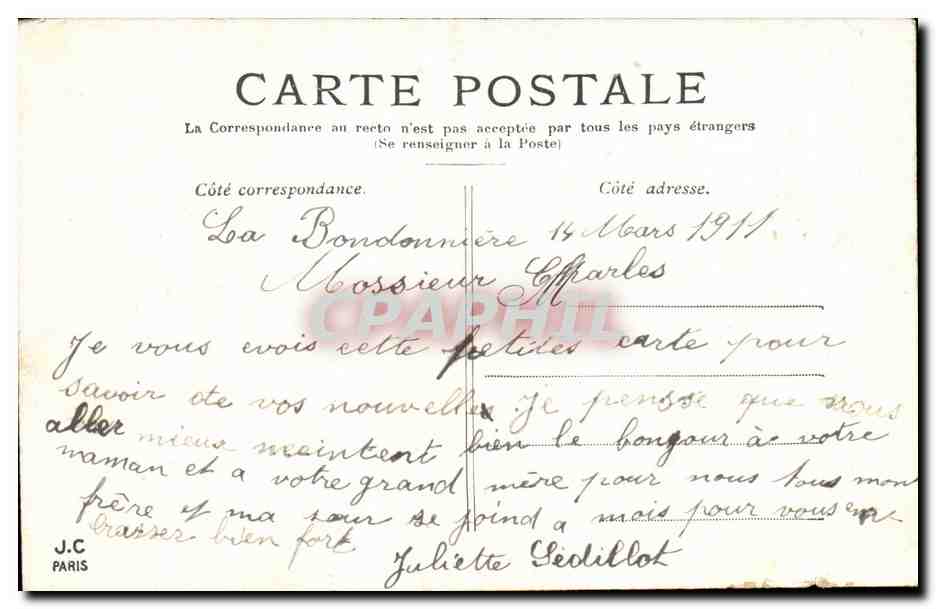 CARTE POSTALE
La Correspondance au recto n'est pas acceptée par tous les pays étrangers
(Se renseigner à la Poste)
Côté correspondance.
Côté adresse.
La Bondonnière 14 Mars 1911.
Mossieur Charles
CPAPHIL
Je vous evois cette petides carte pour
savoir de vos nouvelles. Je pensse que vous
aller mieux maintent bien le bongour à votre
maman et a votre grand mère pour nous tous mon
frère et ma sœur se joind a mois pour vous em
brasser bien fort
Juliette Sédillot
J.C
PARIS